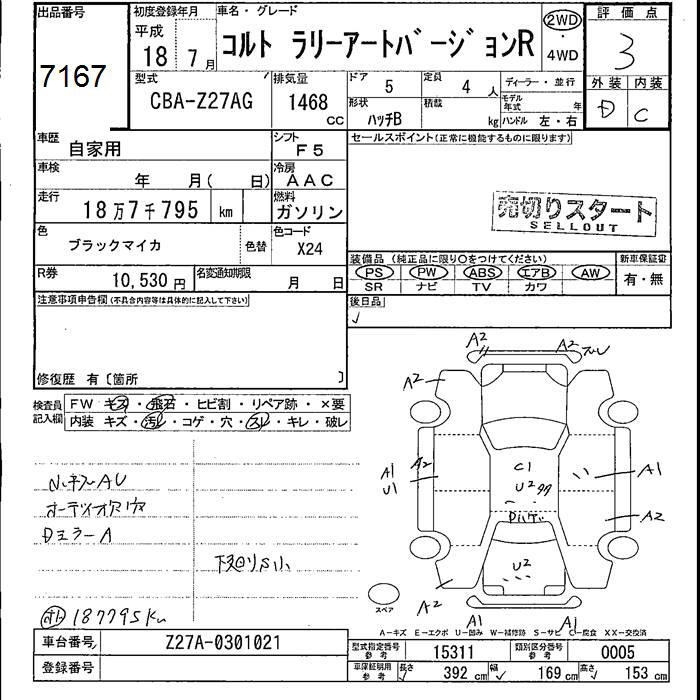 出品番号
7167
初度登録年月
平成
18 年 7 月
車名・グレード
コルト ラリーアートバージョンR
2WD
・
4WD
評価点
3
外装 内装
D C
型式
CBA-Z27AG
排気量
1468
CC
ドア
5
定員
4 人
形状
ハッチB
積載
kg
ディーラー・並行
モデル年式
年
ハンドル 左・右
車歴
自家用
シフト
F5
セールスポイント(正常に機能するものに限ります)
車検
年 月( 日)
冷房
AAC
走行
18万7千795 km
燃料
ガソリン
売切りスタート
SELLOUT
色
ブラックマイカ
色替
色コード
X24
装備品(純正品に限り○をつけてください)
新車保証書
PS PW ABS エアB AW
SR ナビ TV カワ
有・無
R券
10,530 円
名変通知期限
月 日
後日品
注意事項申告欄(不具合内容等は具体的に記入して下さい)
修復歴 有〔箇所 〕
検査員記入欄
FW キズ・飛石・ヒビ割・リペア跡・×要
内装 キズ・汚レ・コゲ・穴・スレ・キレ・破レ
オーディオ欠
DミラーA
下廻りS小
187795km
A2
A2
A2
A1
U1
A2
C1
U2
A1
A2
U2
A2
A1
A1
スペア
A-キズ E-エクボ U-凹み W-補修跡 S-サビ C-腐食 XX-交換済
車台番号
Z27A-0301021
登録番号
型式指定番号
参考
15311
類別区分番号
参考
0005
車庫証明用
参考
長さ
392 cm
幅
169 cm
高さ
153 cm